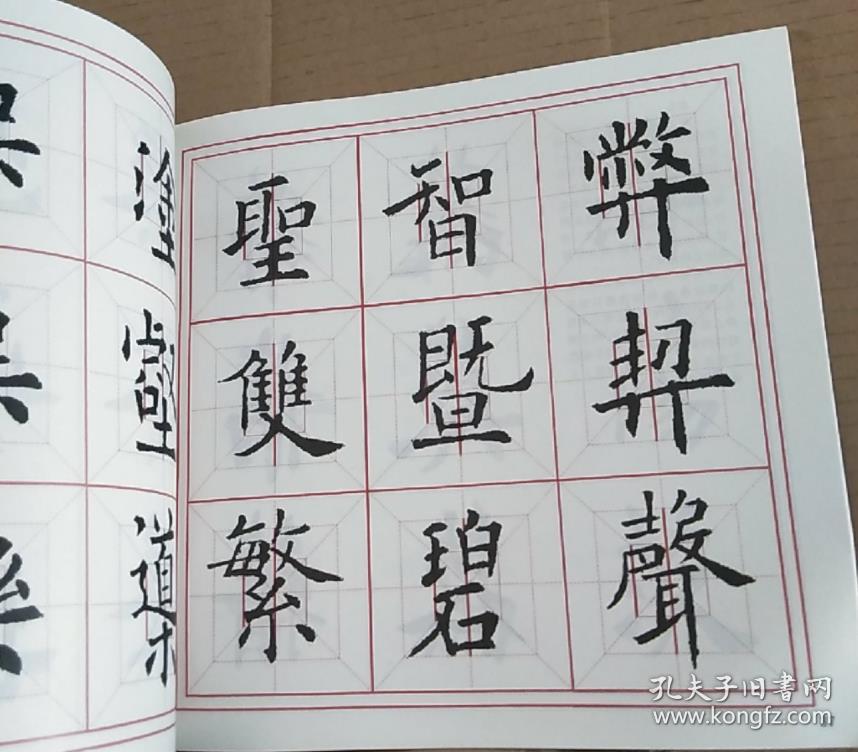 弊契聲
智暨碧
聖雙繁
塗壑
孔夫子旧書网
www.kongfz.com